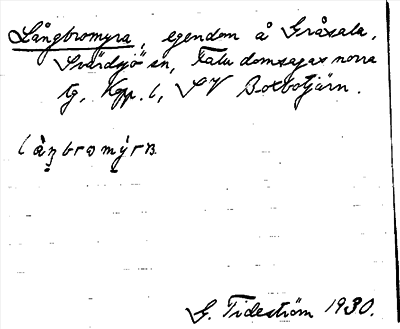 Långbromyra, egendom å Gråsala,
Svärdsjö sn, Falu domsagas norra
tg, Kpp. l, SV Borbotjärn.
làŋbromy̍rɐ
G. Tideström 1930.